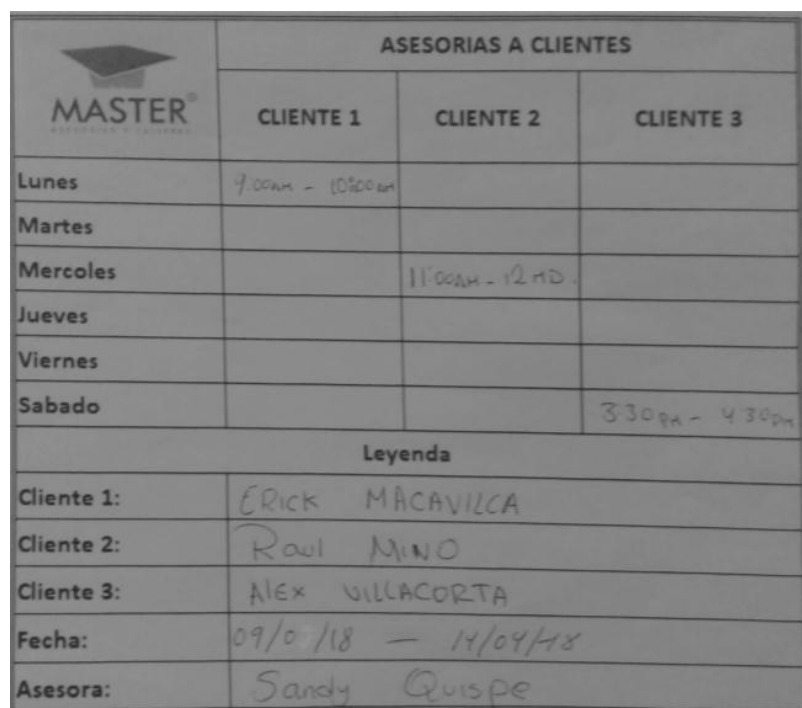 ASESORIAS A CLIENTES
MASTER®
CLIENTE 1 CLIENTE 2 CLIENTE 3
Lunes 9:00AM - 10:00AM
Martes
Mercoles 11:00AM - 12 MD.
Jueves
Viernes
Sabado 3:30PM - 4:30PM
Leyenda
Cliente 1: ERICK MACAVILCA
Cliente 2: Raul MINO
Cliente 3: AlEX VILLACORTA
Fecha: 09/0 /18 — 14/04/18
Asesora: Sandy Quispe